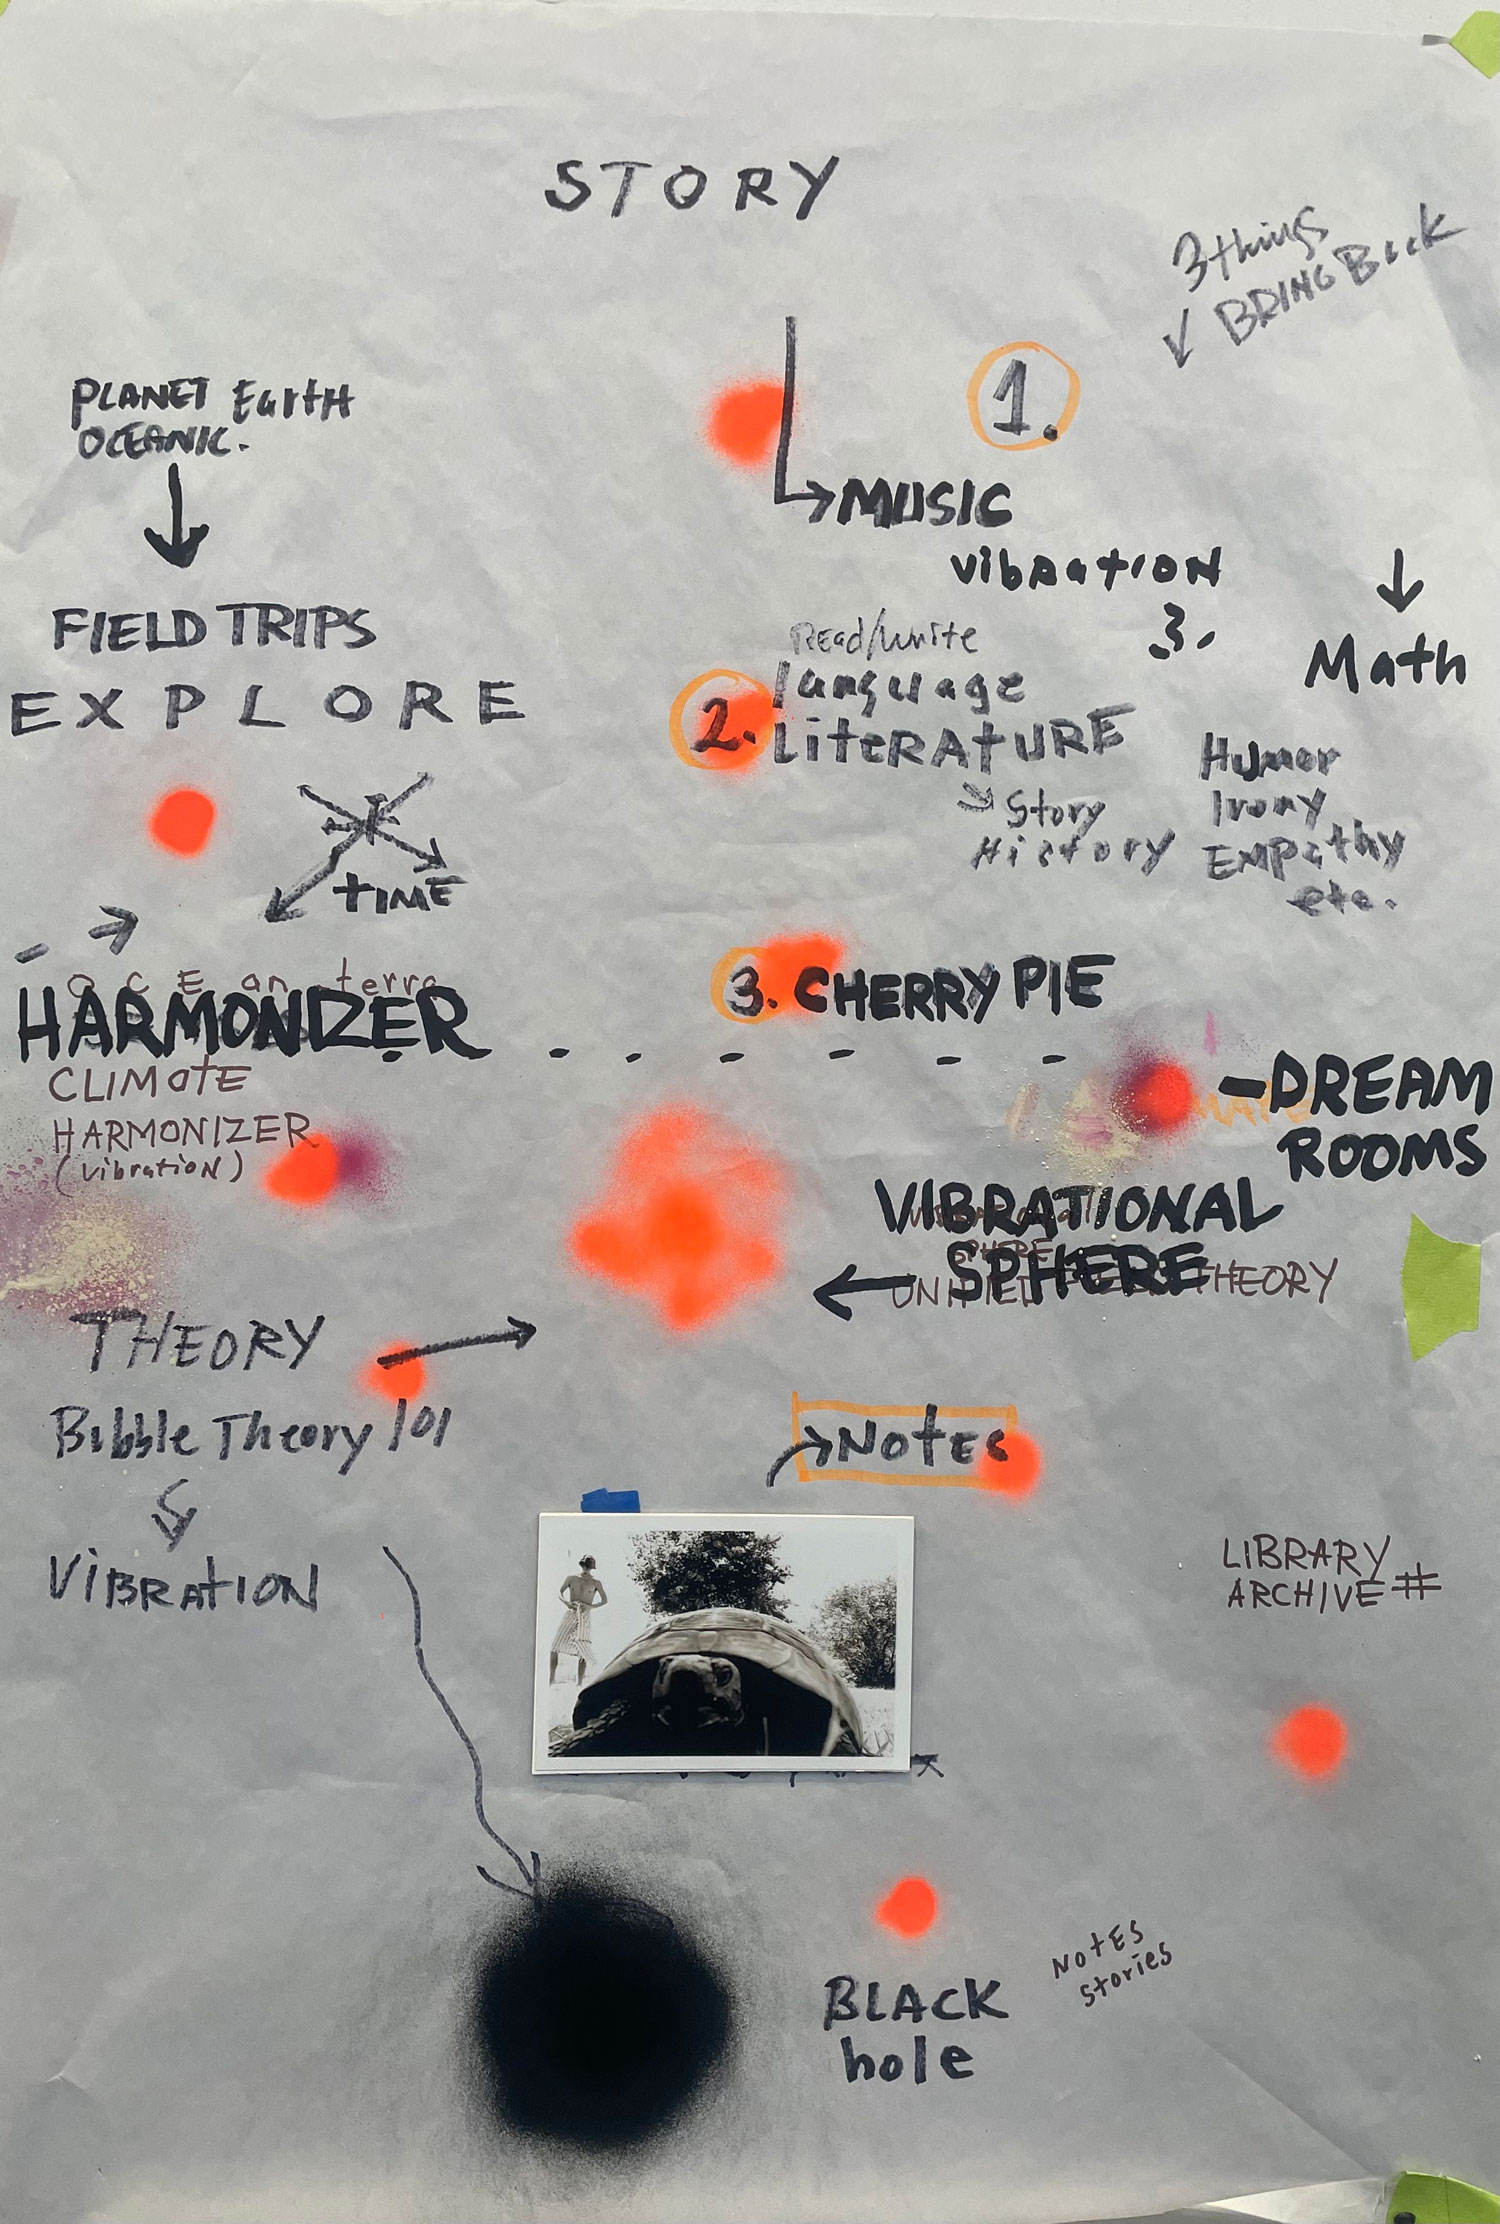 STORY
3 things
BRING Back
PLANET Earth
OCEANIC.
1.
MUSIC
vibration
3.
Math
FIELD TRIPS
EXPLORE
Read/write
language
2. LiteRATURE
Story
History
Humor
Irony
Empathy
etc.
TIME
OCEan terra
HARMONIZER
CLIMate
HARMONIZER
(vibration)
3. CHERRY PIE
-DREAM
ROOMS
VIBRATIONAL
SPHERE
SPHERE
UNIFIED THEORY
THEORY
Bubble Theory 101
ViBRATION
Notes
LIBRARY
ARCHIVE #
BLACK
hole
NotES
stories